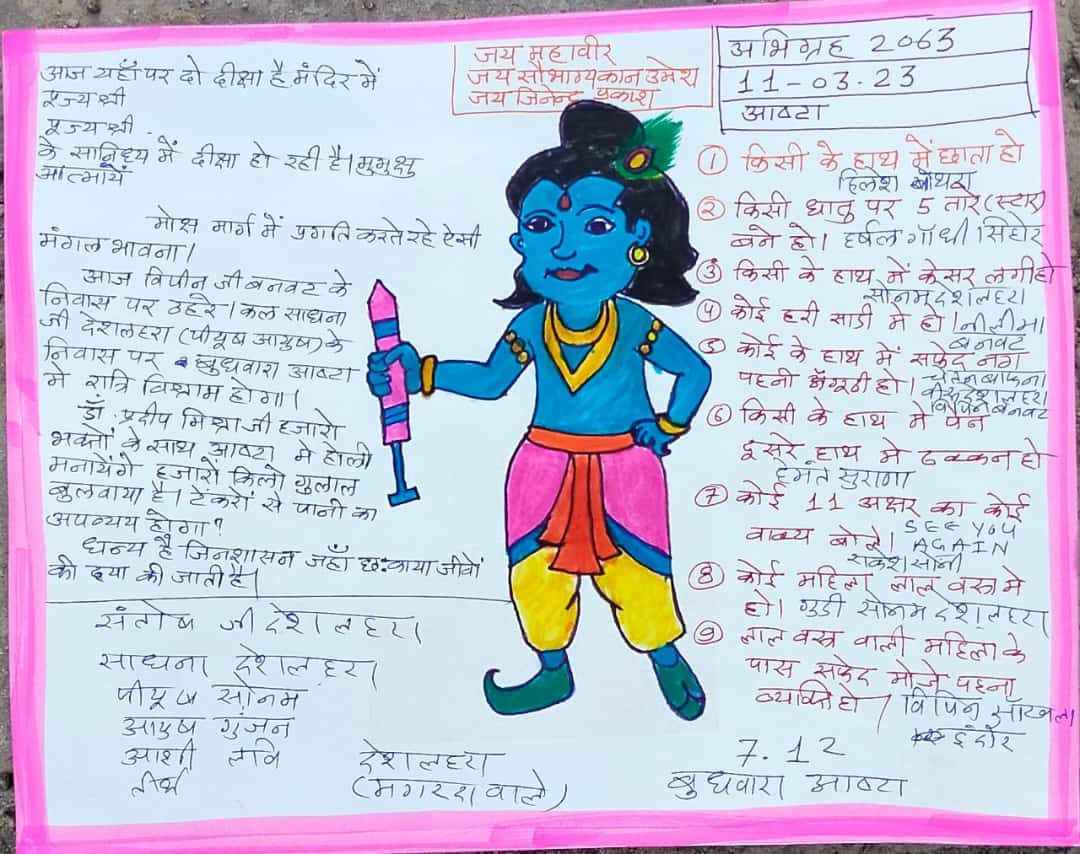 जय महावीर
जय सौभाग्यकान उमेश
जय जिनेन्द्र प्रकाश
अभिग्रह 2063
11-03.23
आष्टा
आज यहाँ पर दो दीक्षा है मंदिर में
पूज्य श्री
पूज्य श्री .
के सानिध्य में दीक्षा हो रही है। मुमुक्षु
आत्मायें
मोक्ष मार्ग में प्रगति करते रहे ऐसी
मंगल भावना।
आज विपीन जी बनवट के
निवास पर ठहरे। कल साधना
जी देशलहरा (पीयूष आयुष) के
निवास पर बुधवारा आष्टा
मे रात्रि विश्राम होगा।
डॉ. प्रदीप मिश्रा जी हजारो
भक्तों के साथ आष्टा मे होली
मनायेंगे हजारों किलो गुलाल
बुलवाया है। टेंकरों से पानी का
अपव्यय होगा?
धन्य है जिनशासन जहाँ छःकाया जीवों
की दया की जाती है।
संतोष जी देशलहरा
साधना देशलहरा
पीयूष सोनम
आयुष गुंजन
आशी लवि
तीर्थ
देशलहरा
(मगरदा वाले)
① किसी के हाथ में छाता हो
हिलेश बोथरा
② किसी धातु पर 5 तारे (स्टार)
बने हो। हर्षल गाँधी सिहोर
③ किसी के हाथ में केसर लगी हो
सोनम देशलहरा
④ कोई हरी साडी मे हो। नीलीमा
बनवट
⑤ कोई के हाथ में सफेद नग
पहनी अंगूठी हो। चेतन बाफना
देशलहरा
विपिन बनवट
⑥ किसी के हाथ में पेन
दूसरे हाथ मे ढक्कन हो
हेमंत सुराणा
⑦ कोई 11 अक्षर का कोई
वाक्य बोले। SEE YOU
AGAIN
राकेश सोनी
⑧ कोई महिला लाल वस्त्र मे
हो। गुडी सोनम देशलहरा
⑨ लाल वस्त्र वाली महिला के
पास सफेद मोजे पहना
व्यक्ति हो / विपिन साँखला
इंदौर
7.12
बुधवारा आष्टा